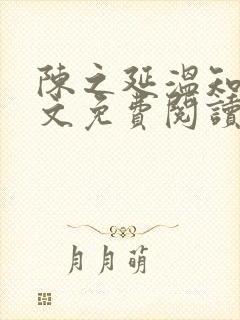 陳之延溫知
文免費閱讀
月月萌